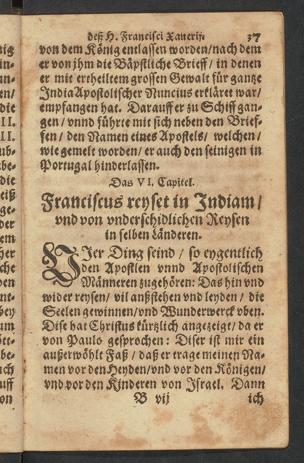 deß H. Francisci Xauerij.
37
von dem König entlassen worden/nach dem
er von jhm die Bäpstliche Brieff / in denen
er mit ertheiltem grossen Gewalt für gantze
India Apostolischer Nuncius erkläret war/
empfangen hat. Darauff er zu Schiff gan-
gen / vnnd führte mit sich neben den Brief-
fen / den Namen eines Apostels / welchen /
wie gemelt worden / er auch den seinigen in
Portugal hinderlassen.
Das VI. Capitel.
Franciscus reyset in Indiam /
vnd von vnderschidlichen Reysen
in selben Länderen.
VIer Ding seind / so eygentlich
den Apostlen vnnd Apostolischen
Männeren zugehören: Das hin vnd
wider reysen / vil anßstehen vnd leyden / die
Seelen gewinnen / vnd Wunderwerck vben.
Dise hat Christus kürtzlich angezeigt / da er
von Paulo gesprochen : Diser ist mir ein
außerwöhlt Faß / daß er trage meinen Na-
men vor den Heyden / vnd vor den Königen /
vnd vor den Kinderen von Israel. Dann
B vij
ich